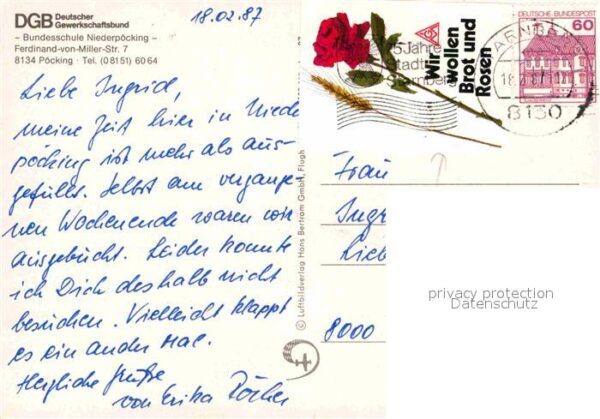 DGB Deutscher
Gewerkschaftsbund
– Bundesschule Niederpöcking –
Ferdinand-von-Miller-Str. 7
8134 Pöcking · Tel. (0 81 51) 60 64
18.02.87
Liebe Ingrid,
meine Zeit hier in Niede
pöcking ist mehr als aus-
gefüllt. Selbst am vergange-
nen Wochenende waren wir
ausgebucht. Leider konnte
ich Dich deshalb nicht
besuchen. Vielleicht klappt
es ein ander Mal.
Herzliche Grüße
von Erika
© Luftbildverlag Hans Bertram GmbH, Flugh
Wir
wollen
Brot und
Rosen
75 Jahre
Stadt
Starnberg
STARNBERG
18.2.87
8130
DEUTSCHE BUNDESPOST
60
Frau
Ingr
Lieb
8000
privacy protection
Datenschutz